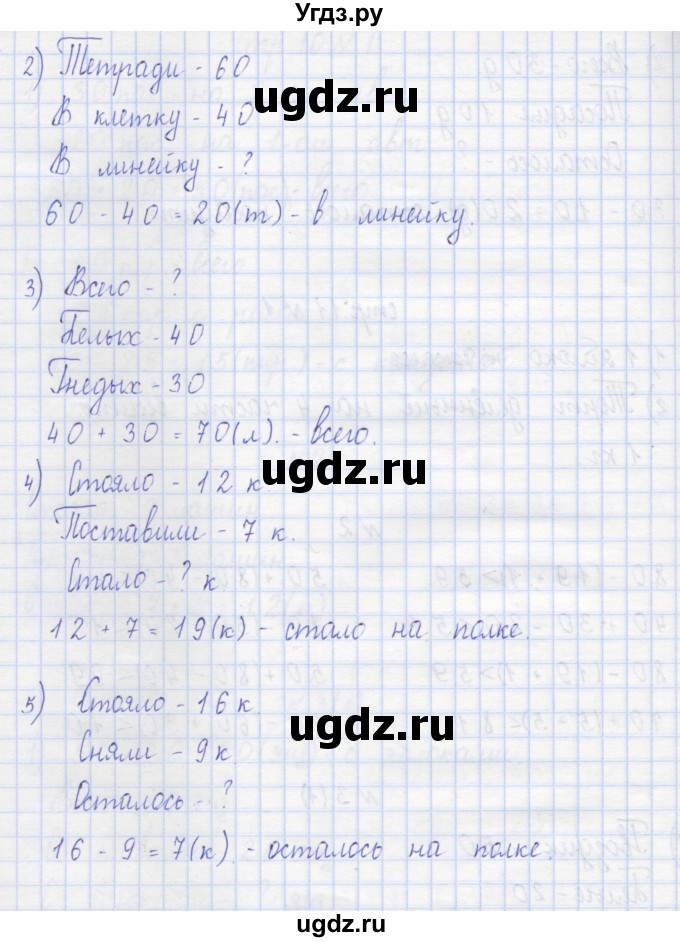 Угдз.ру
2) Тетради - 60
В клетку - 40
ugdz.ru
В линейку - ?
60 - 40 = 20(т) - в линейку.
3) Всего - ?
ugdz.ru
Белых - 40
Гнедых - 30
40 + 30 = 70(л). - всего.
ugdz.ru
4) Стояло - 12 к.
Поставили - 7 к.
Стало - ? к
12 + 7 = 19(к) - стало на полке.
5) Стояло - 16 к.
ugdz.ru
Сняли - 9к
Осталось - ?
16 - 9 = 7(к). - осталось на полке.
ugdz.ru